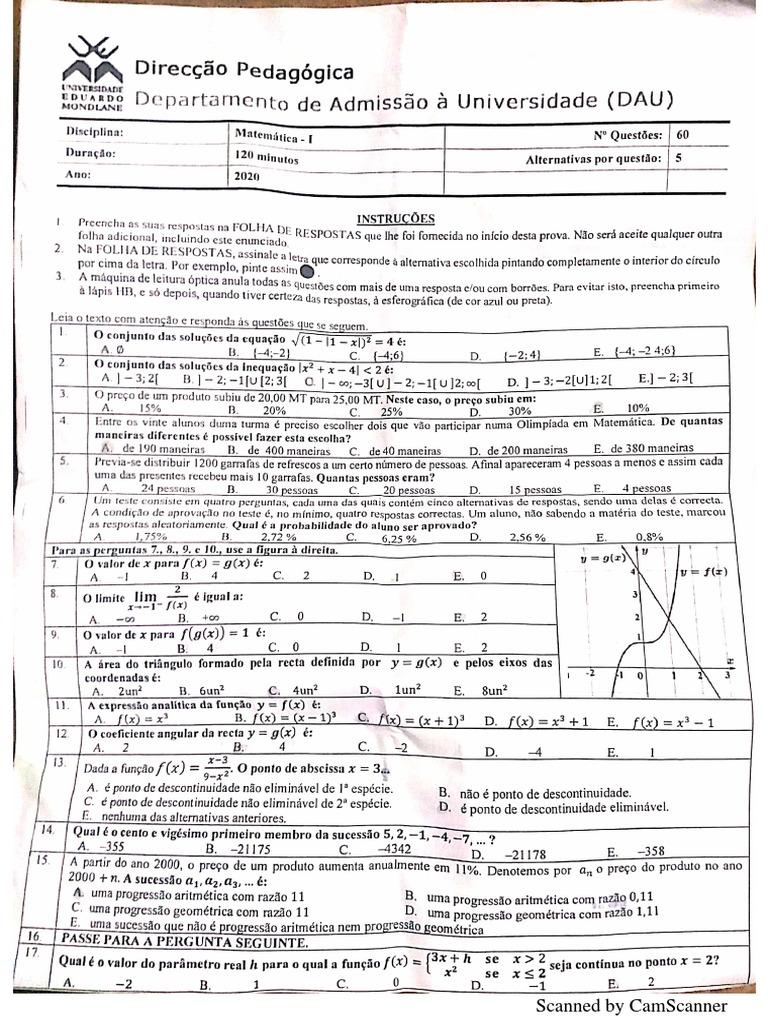 UNIVERSIDADE
EDUARDO
MONDLANE
Direcção Pedagógica
Departamento de Admissão à Universidade (DAU)
Disciplina: Matemática - I Nº Questões: 60
Duração: 120 minutos Alternativas por questão: 5
Ano: 2020
INSTRUÇÕES
1. Preencha as suas respostas na FOLHA DE RESPOSTAS que lhe foi fornecida no início desta prova. Não será aceite qualquer outra
folha adicional, incluindo este enunciado.
2. Na FOLHA DE RESPOSTAS, assinale a letra que corresponde à alternativa escolhida pintando completamente o interior do círculo
por cima da letra. Por exemplo, pinte assim
3. A máquina de leitura óptica anula todas as questões com mais de uma resposta e/ou com borrões. Para evitar isto, preencha primeiro
à lápis HB, e só depois, quando tiver certeza das respostas, à esferográfica (de cor azul ou preta).
Leia o texto com atenção e responda às questões que se seguem.
1. O conjunto das soluções da equação √(1 − |1 − x|)² = 4 é:
A. ∅ B. {-4;-2} C. {-4;6} D. {-2; 4} E. {-4; -2 4;6}
2. O conjunto das soluções da inequação |x² + x − 4| < 2 é:
A. ] − 3; 2[ B. ] − 2; −1[∪]2; 3[ C. ] − ∞; −3[ ∪ ] − 2; −1[ ∪ ]2; ∞[ D. ] − 3; −2[∪]1; 2[ E. ] − 2; 3[
3. O preço de um produto subiu de 20,00 MT para 25,00 MT. Neste caso, o preço subiu em:
A. 15% B. 20% C. 25% D. 30% E. 10%
4. Entre os vinte alunos duma turma é preciso escolher dois que vão participar numa Olimpíada em Matemática. De quantas
maneiras diferentes é possível fazer esta escolha?
A. de 190 maneiras B. de 400 maneiras C. de 40 maneiras D. de 200 maneiras E. de 380 maneiras
5. Previa-se distribuir 1200 garrafas de refrescos a um certo número de pessoas. Afinal apareceram 4 pessoas a menos e assim cada
uma das presentes recebeu mais 10 garrafas. Quantas pessoas eram?
A. 24 pessoas B. 30 pessoas C. 20 pessoas D. 15 pessoas E. 4 pessoas
6. Um teste consiste em quatro perguntas, cada uma das quais contém cinco alternativas de respostas, sendo uma delas é correcta.
A condição de aprovação no teste é, no mínimo, quatro respostas correctas. Um aluno, não sabendo a matéria do teste, marcou
as respostas aleatoriamente. Qual é a probabilidade do aluno ser aprovado?
A. 1,75% B. 2,72 % C. 6,25 % D. 2,56 % E. 0,8%
Para as perguntas 7., 8., 9. e 10., use a figura à direita.
7. O valor de x para f(x) = g(x) é:
A. −1 B. 4 C. 2 D. 1 E. 0
8. O limite lim x→−1⁻ 2/f(x) é igual a:
A. −∞ B. +∞ C. 0 D. −1 E. 2
9. O valor de x para f(g(x)) = 1 é:
A. −1 B. 4 C. 0 D. 1 E. 2
10. A área do triângulo formado pela recta definida por y = g(x) e pelos eixos das
coordenadas é:
A. 2un² B. 6un² C. 4un² D. 1un² E. 8un²
y = g(x) y
4 y = f(x)
3
2
1
-2 -1 0 1 2 3
11. A expressão analítica da função y = f(x) é:
A. f(x) = x³ B. f(x) = (x − 1)³ C. f(x) = (x + 1)³ D. f(x) = x³ + 1 E. f(x) = x³ − 1
12. O coeficiente angular da recta y = g(x) é:
A. 2 B. 4 C. −2 D. −4 E. 1
13. Dada a função f(x) = (x−3)/(9−x²). O ponto de abscissa x = 3...
A. é ponto de descontinuidade não eliminável de 1ª espécie. B. não é ponto de descontinuidade.
C. é ponto de descontinuidade não eliminável de 2ª espécie. D. é ponto de descontinuidade eliminável.
E. nenhuma das alternativas anteriores.
14. Qual é o cento e vigésimo primeiro membro da sucessão 5, 2, −1, −4, −7, ... ?
A. −355 B. −21175 C. −4342 D. −21178 E. −358
15. A partir do ano 2000, o preço de um produto aumenta anualmente em 11%. Denotemos por aₙ o preço do produto no ano
2000 + n. A sucessão a₁, a₂, a₃, ... é:
A. uma progressão aritmética com razão 11 B. uma progressão aritmética com razão 0,11
C. uma progressão geométrica com razão 11 D. uma progressão geométrica com razão 1,11
E. uma sucessão que não é progressão aritmética nem progressão geométrica
16. PASSE PARA A PERGUNTA SEGUINTE.
17. Qual é o valor do parâmetro real h para o qual a função f(x) = {3x + h se x > 2
x² se x ≤ 2 seja contínua no ponto x = 2?
A. −2 B. 1 C. 0 D. −1 E. 2
Scanned by CamScanner